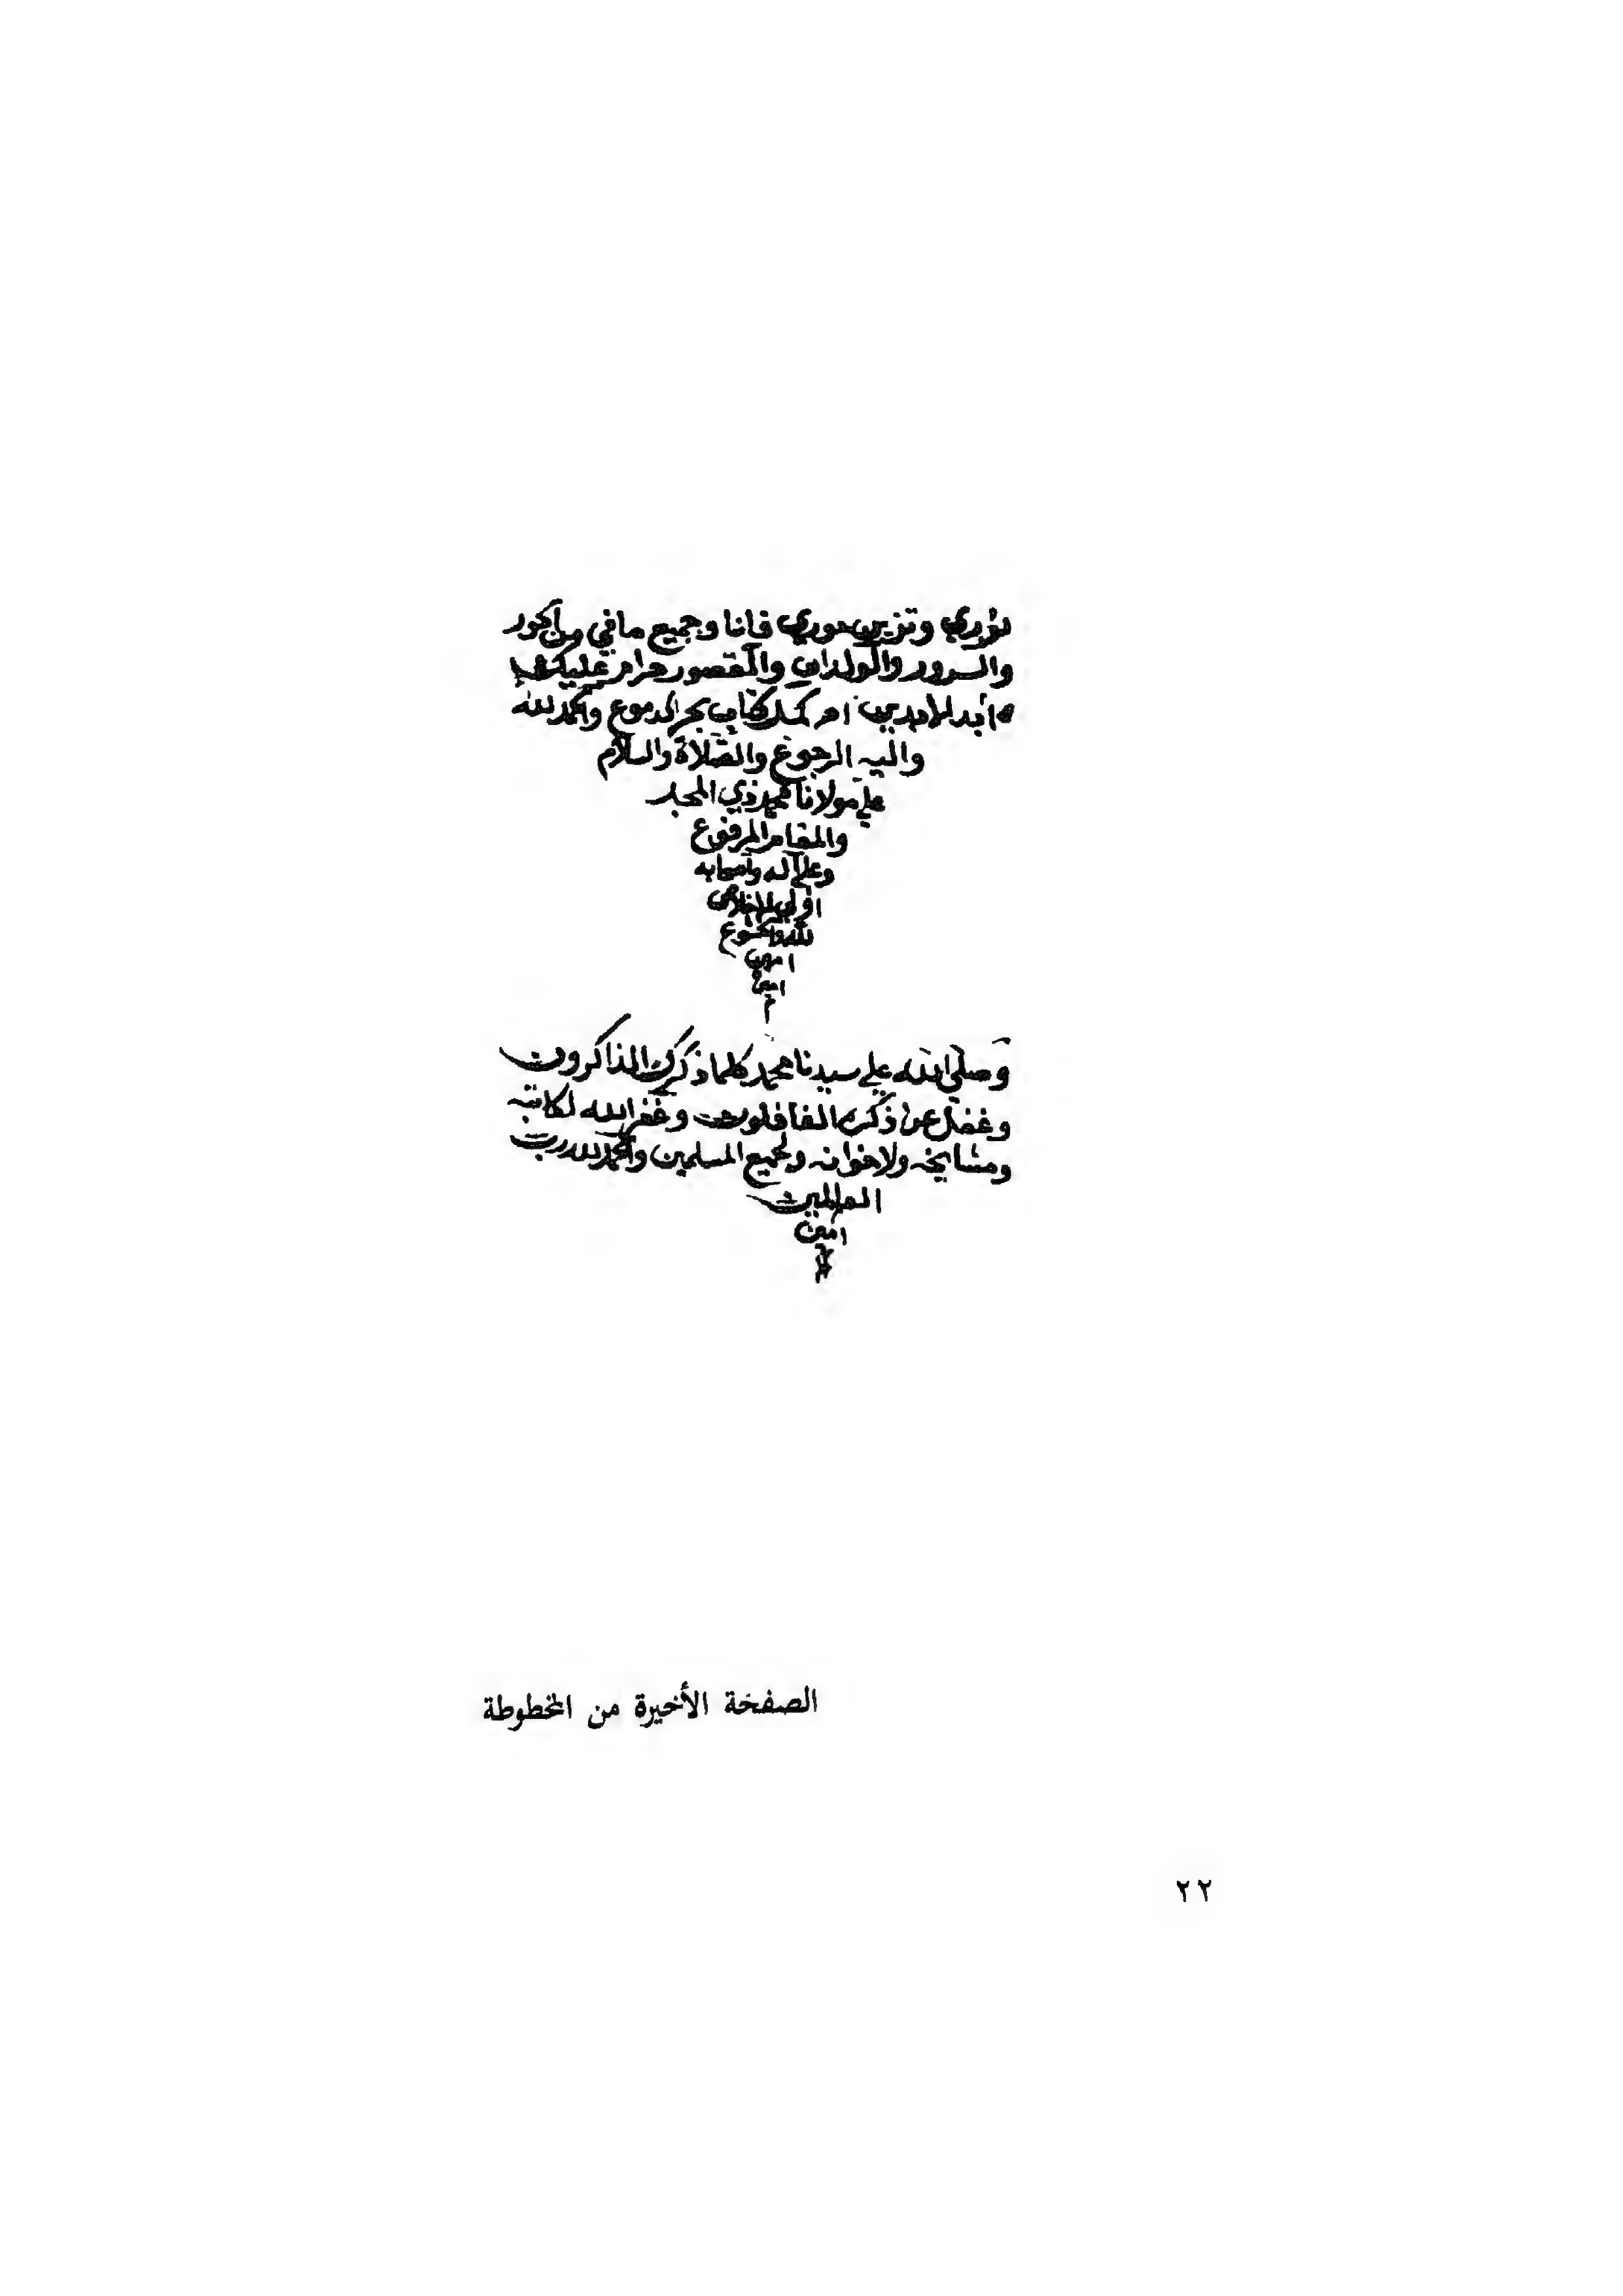 نوري وتزين حوري فانا وجميع ما في من الحور
والسرور والولدان والقصور حرام عليك
ابد الابدين اه كمل كتاب بحر الدموع والحمد لله
واليه الرجوع والصلاة والسلام
علي مولانا محمد ذي المجد
والمقام المرفوع
وعلي آله واصحابه
اولي الاخلاص
لله والخشوع
امين
امين
م
وصلي الله علي سيدنا محمد كلما ذكرك الذاكرون
وغفل عن ذكره الغافلون وغفر الله لكاتبه
ومشايخه ولاخوانه ولجميع المسلمين والحمد لله رب
العالمين
امين
الصفحة الأخيرة من المخطوطة
٢٢